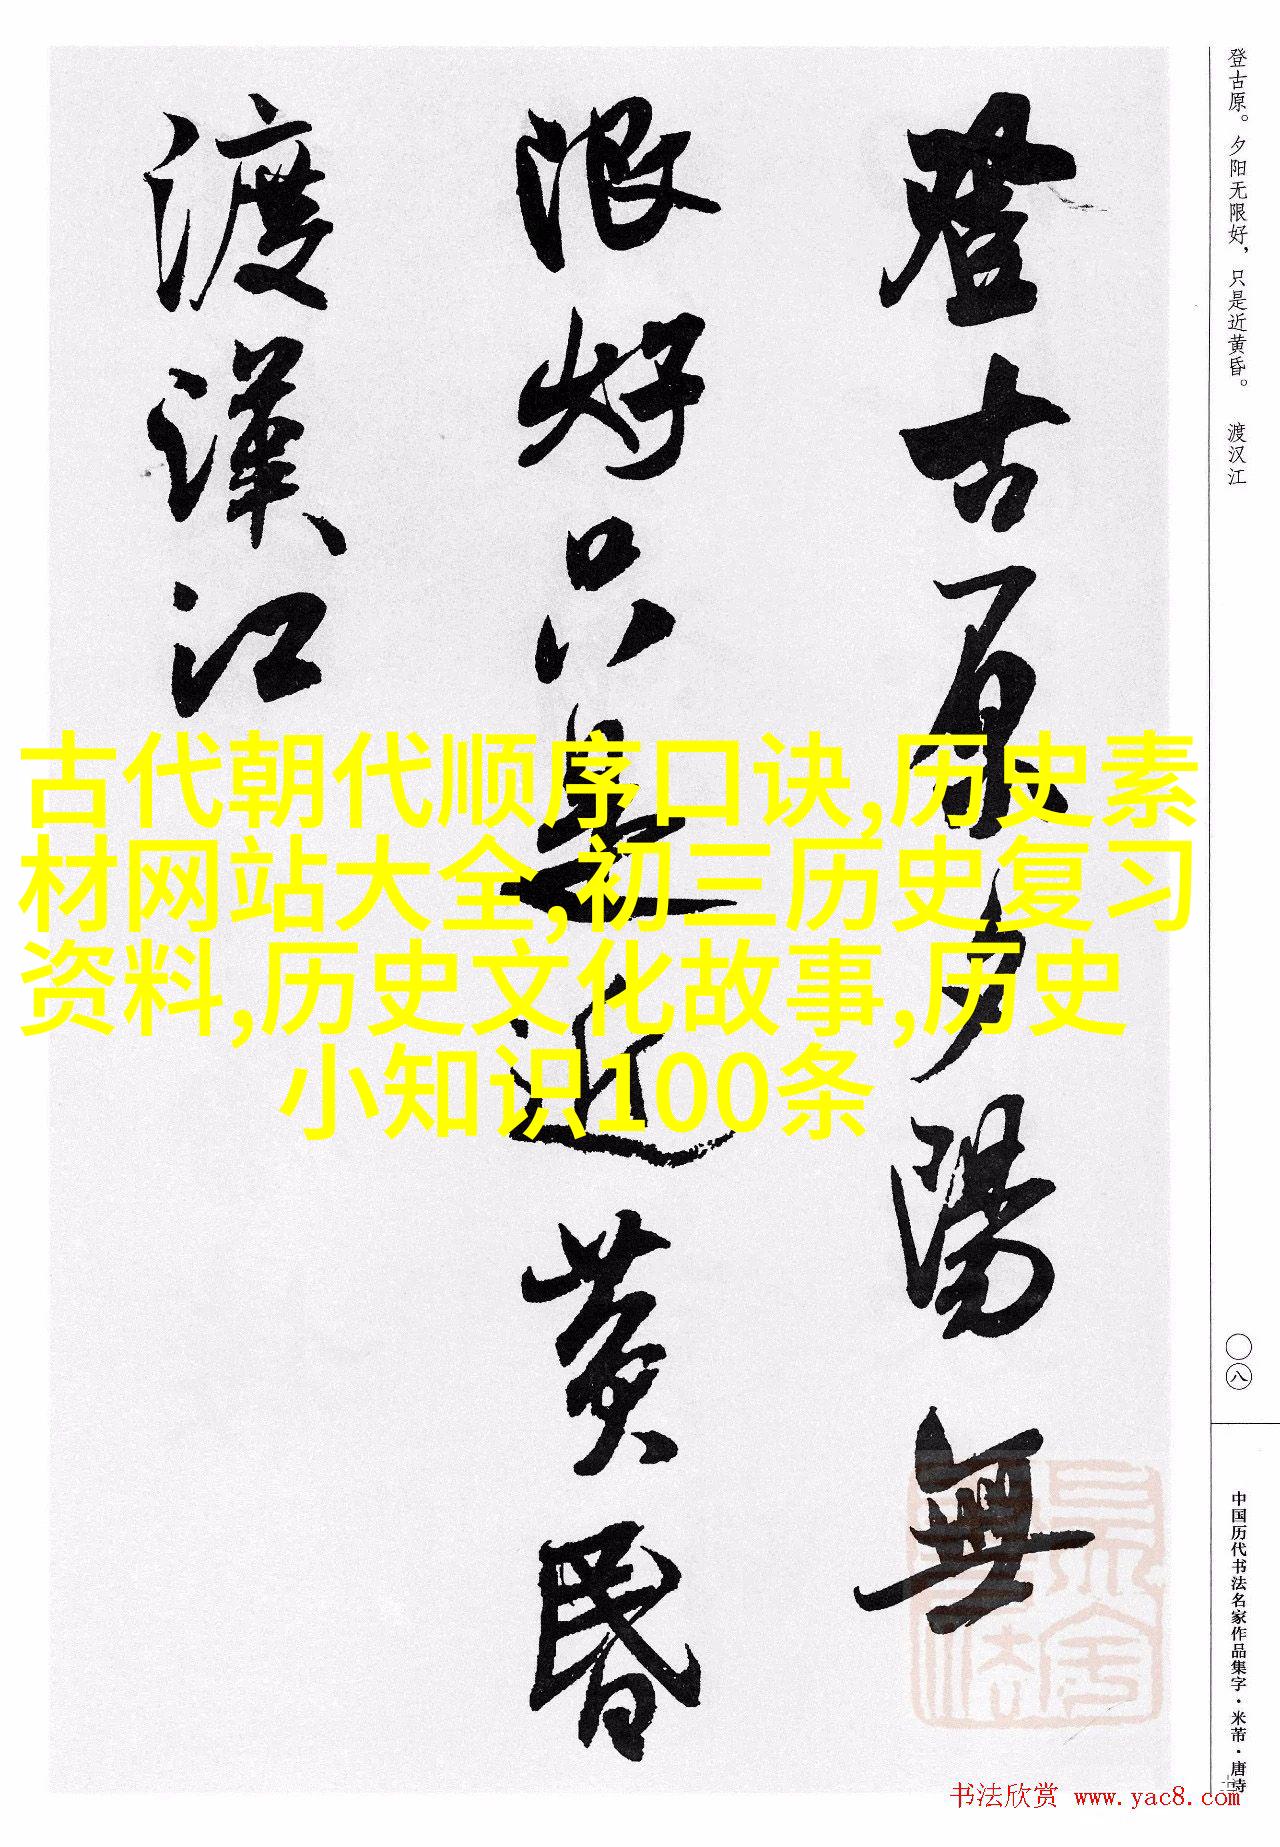 登古原夕陽無
限好只是近黄昏
渡漢江
古代朝代顺序口诀,历史素
材网站大全,初三历史复习
资料,历史文化故事,历史
小知识100条
登古原。夕阳无限好，只是近黄昏。 渡汉江
〇八
中国历代书法名家作品集字·米芾·唐诗
书法欣赏 www.yac8.com